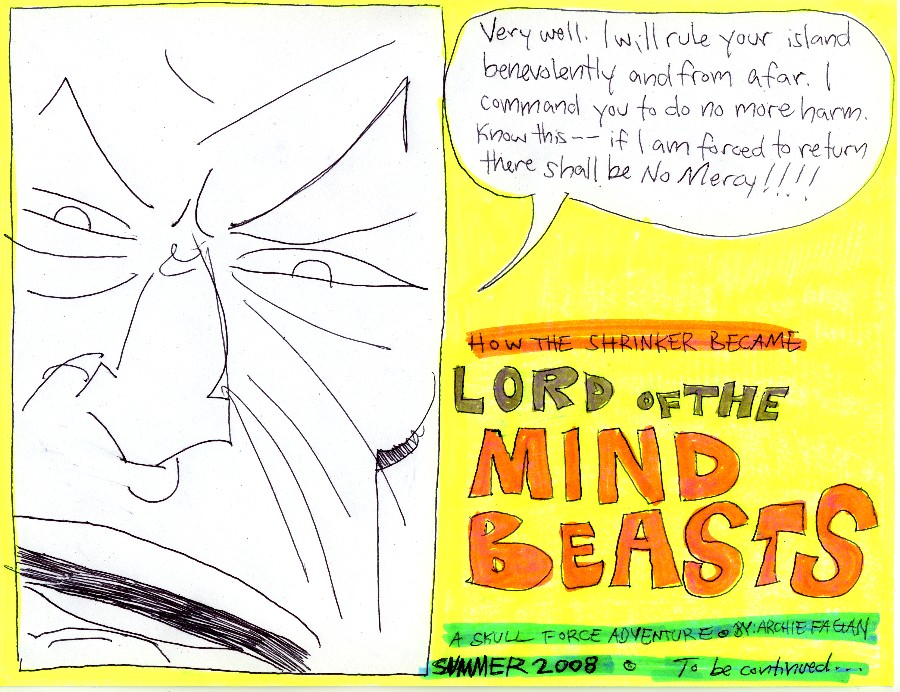 Very well. I will rule your island
benevolently and from afar. I
command you to do no more harm.
Know this -- if I am forced to return
there shall be No Mercy!!!!
HOW THE SHRINKER BECAME
LORD OF THE
MIND
BEASTS
A SKULL FORCE ADVENTURE • BY: ARCHIE FAGAN
SUMMER 2008 • To be continued...